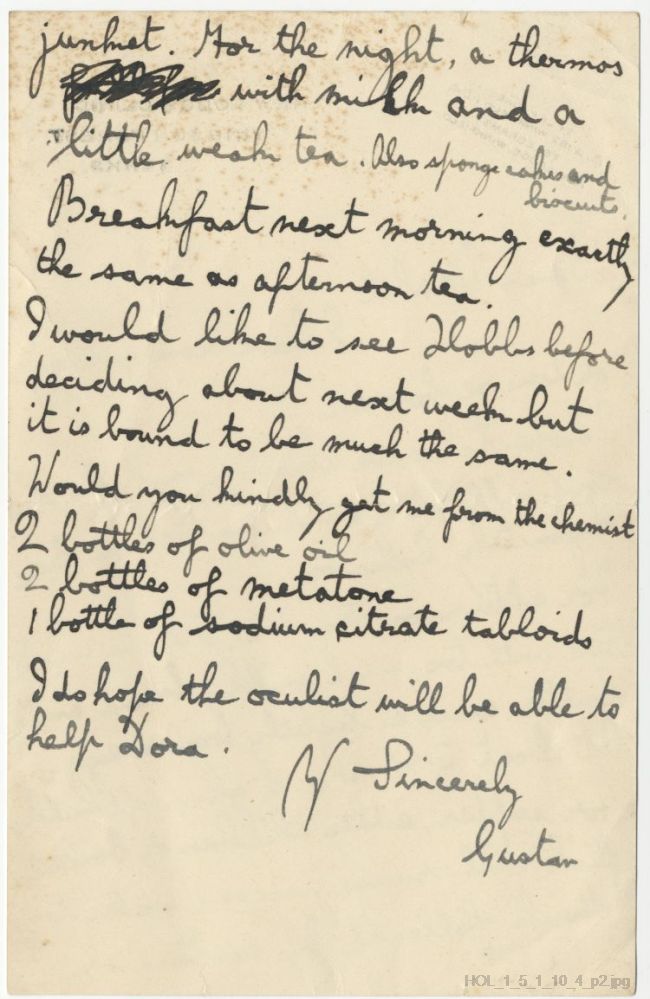 junket. For the night, a thermos
with milk and a
little weak tea. Also sponge cakes and
biscuits.
Breakfast next morning exactly
the same as afternoon tea.
I would like to see Hobbs before
deciding about next week but
it is bound to be much the same.
Would you kindly get me from the chemist
2 bottles of olive oil
2 bottles of metatone
1 bottle of sodium citrate tabloids
I do hope the oculist will be able to
help Dora.
Y Sincerely
Gustav
HOL_1_5_1_10_4_p2.jpg